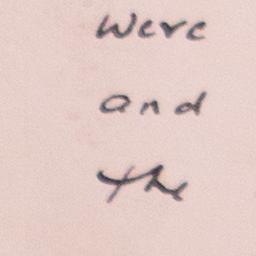 were
and
the